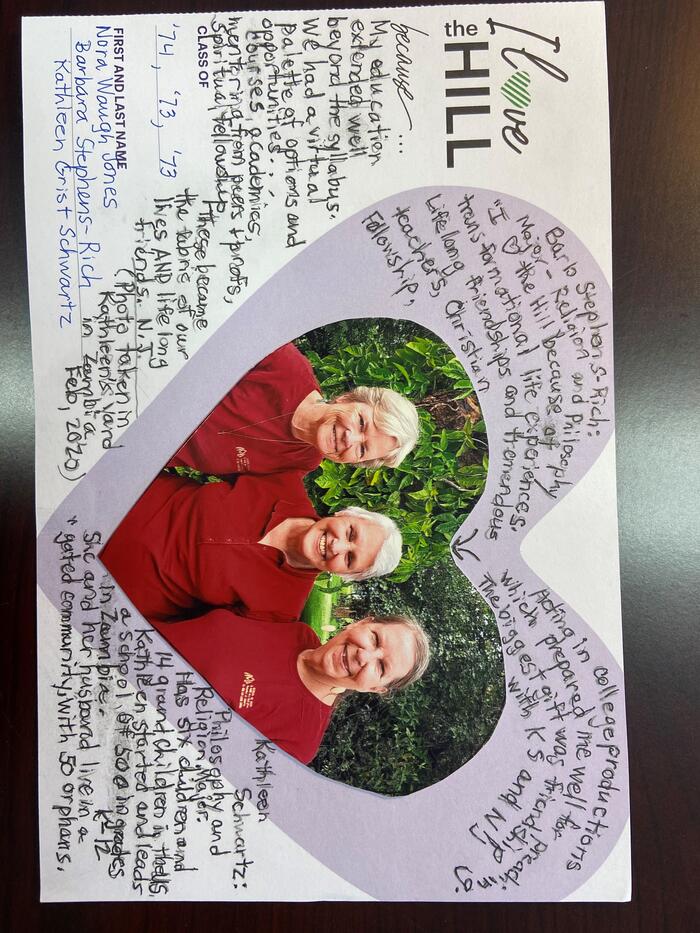 I love
the
HILL
because...
My education
extended well
beyond the syllabus.
We had a virtual
palette of options and
opportunities...
courses, academics,
mentoring from peers & profs,
spiritual fellowship
these became
the fabric of our
lives AND lifelong
friends. NJ
(Photo taken in
Kathleen's yard
in Zambia,
Feb, 2020)
CLASS OF
'74, '73, '73
FIRST AND LAST NAME
Nora Waugh Jones
Barbara Stephens-Rich
Kathleen Grist Schwartz
Barb Stephens-Rich:
Major - Religion and Philosophy
"I ♡ the Hill because of
transformational life experiences.
Lifelong friendships and tremendous
teachers, Christian
Fellowship,
Acting in college productions
which prepared me well for
The biggest gift was friendship
with KS and NJ
Kathleen
Schwartz:
Philosophy and
Religion Major.
Has six children and
14 grandchildren in the US,
Kathleen started and leads
a school of 500 in grades
in Zambia. K-12
She and her husband live in a
gated community, with 50 orphans.